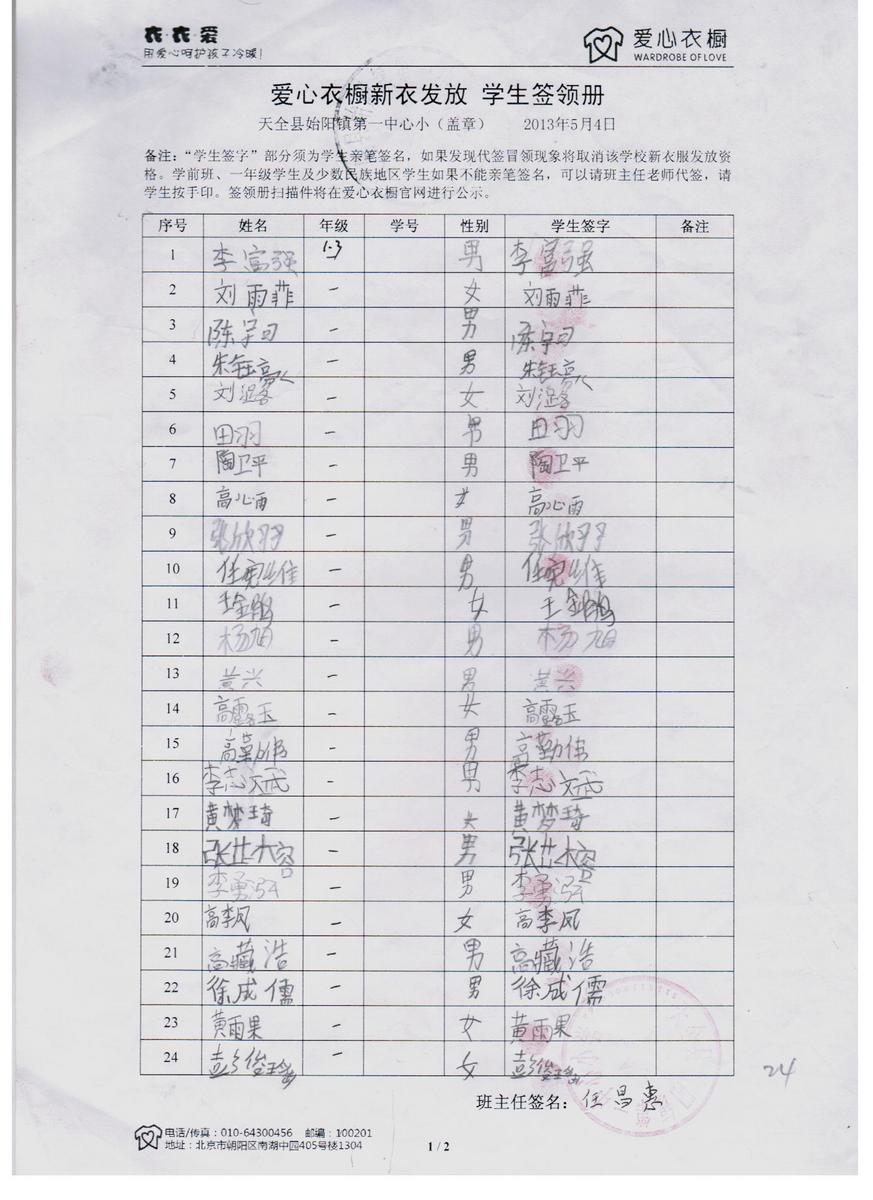 衣·衣·爱
用爱心呵护孩子冷暖!
爱心衣橱
WARDROBE OF LOVE
爱心衣橱新衣发放 学生签领册
天全县始阳镇第一中心小（盖章） 2013年5月4日
备注：“学生签字”部分须为学生亲笔签名，如果发现代签冒领现象将取消该学校新衣服发放资
格。学前班、一年级学生及少数民族地区学生如果不能亲笔签名，可以请班主任老师代签，请
学生按手印。签领册扫描件将在爱心衣橱官网进行公示。
序号 姓名 年级 学号 性别 学生签字 备注
1 李富强 1.3 男 李富强
2 刘雨菲 一 女 刘雨菲
3 一 男
4 一 男
5 一 女
6 田羽 一 男 田羽
7 陶卫平 一 男 陶卫平
8 高心雨 一 女 高心雨
9 张欣羽 一 男 张欣羽
10 任宪维 一 男 任宪维
11 一 女
12 杨旭 一 男 杨旭
13 黄兴 一 男 黄兴
14 高露玉 一 女 高露玉
15 高勤伟 一 男 高勤伟
16 李志斌 一 男 李志斌
17 黄梦琦 一 女 黄梦琦
18 张世榕 一 男 张世榕
19 李勇强 一 男 李勇强
20 高李凤 一 女 高李凤
21 高藏浩 一 男 高藏浩
22 徐成儒 一 男 徐成儒
23 黄雨果 一 女 黄雨果
24 一 女
24
班主任签名：任昌惠
电话/传真：010-64300456 邮编：100201
地址：北京市朝阳区南湖中园405号楼1304
1 / 2